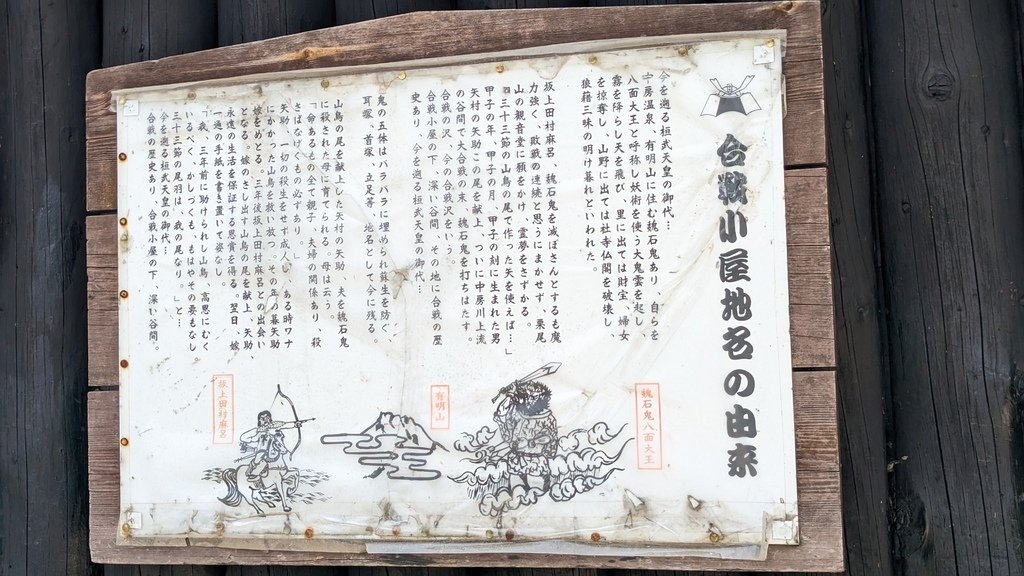 合戦小屋地名の由来
今を遡る桓武天皇の御代…
中房温泉、有明山に住む魏石鬼あり、自らを
八面大王と呼称し妖術を使う大鬼雲を起し、
霧を降らし天を飛び、里に出ては財宝、婦女
を強奪し、山野に出ては社寺仏閣を破壊し、
狼藉三昧の明け暮れといわれた。
坂上田村麻呂、魏石鬼を滅ぼさんとするも魔
力強く、敗戦の連続と思うにまかせず、栗尾
山の観音堂に願をかけ、霊夢をさずかる。
『三十三節の山鳥の尾で作った矢を使えば…』
甲子の年、甲子の月、甲子の刻に生まれた男
矢村の矢助この尾を献上、ついに中房川上流
の谷間で大合戦の末、魏石鬼を打ちはたす。
合戦の沢、今の合戦沢をいう。
合戦小屋の下、深い谷間、その地に合戦の歴
史あり、今を遡る桓武天皇の御代…
鬼の五体はバラバラに埋められ蘇生を防ぐ、
耳塚、首塚、立足等、地名として今に残る。
山鳥の尾を献上した矢村の矢助、夫を魏石鬼
に殺された母に育てられる。母は云う。
「命あるもの全て親子、夫婦の関係あり、殺
さばなげくもの必ずあり。」
矢助、一切の殺生をせず成人し、ある時ワナ
にかかった山鳥を救い放つ。その年の暮矢助
嫁をめとる。三年後坂上田村麻呂との出会い
となる。嫁のさし出す山鳥の尾を献上、矢助
永遠の生活を保証する恩賞を得る。翌日、嫁
一通の手紙を書き置いて姿なし。
「我、三年前に助けられし山鳥、高恩にむく
いるべく、かしづくも、もはやその要もなし
三十三節の尾羽は、我の尾なり。」と…
今を遡る桓武天皇の御代…
合戦の歴史あり、合戦小屋の下、深い谷間。
魏石鬼八面大王
有明山
坂上田村麻呂